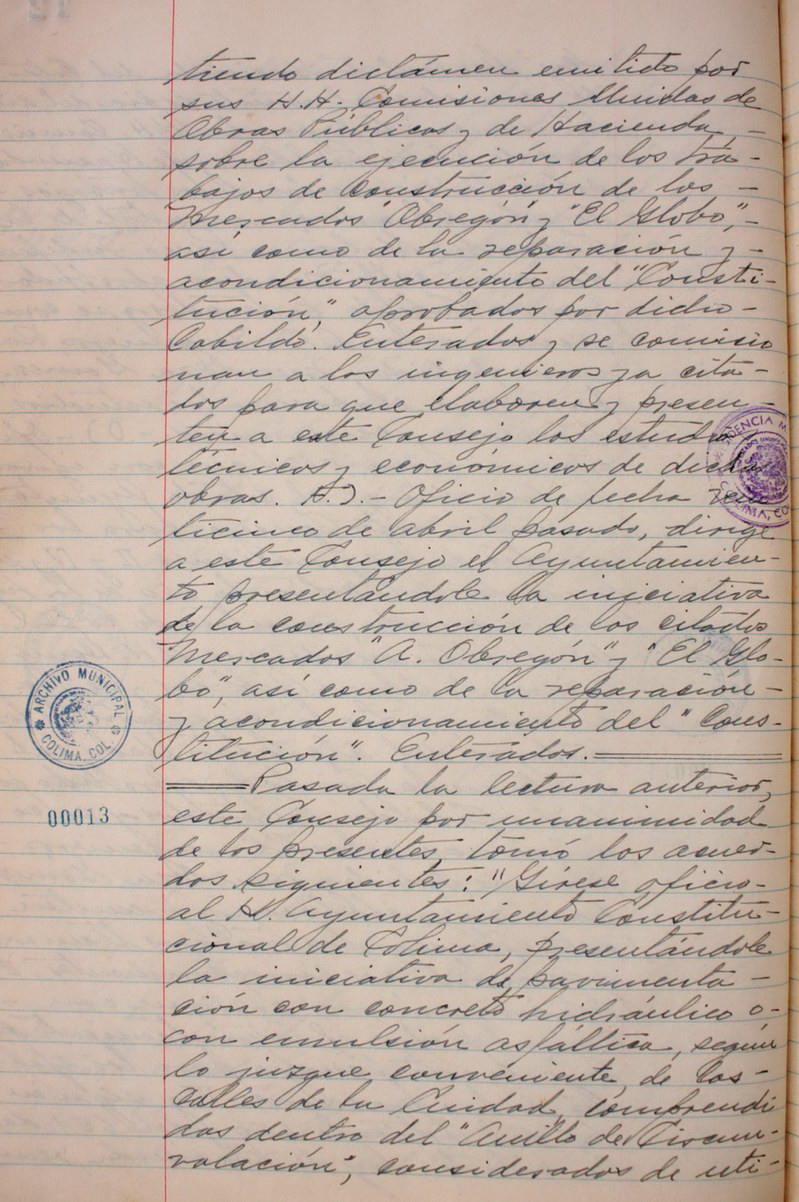 tiendo dictámen emitido por
sus H.H. Comisiones Unidas de
Obras Públicas y de Hacienda, -
sobre la ejecución de los tra-
bajos de construcción de los -
Mercados "Obregón" y "El Globo", -
así como de la reparación y -
acondicionamiento del "Consti-
tución", aprobados por dicho -
Cabildo. Enterados y se comisio
nan a los ingenieros ya cita-
dos para que elaboren y presen-
ten a este Consejo los estudios
técnicos y económicos de dichas
obras. H.). - Oficio de fecha vein
ticinco de abril pasado, dirige
a este Consejo el Ayuntamien-
to presentándole la iniciativa
de la construcción de los citados
Mercados "A. Obregón" y "El Glo-
bo", así como de la reparación -
y acondicionamiento del "Cons-
titución". Enterados.
Pasada la lectura anterior,
este Consejo por unanimidad
de los presentes, tomó los acuer-
dos siguientes: "Gírese oficio -
al H. Ayuntamiento Constitu-
cional de Colima, presentándole
la iniciativa de pavimenta-
ción con concreto hidráulico o -
con emulsión asfáltica, según
lo juzgue conveniente, de las -
Calles de la Ciudad, comprendi
das dentro del "Anillo de Circun-
valación", considerados de uti-
ARCHIVO MUNICIPAL
COLIMA, COL.
00013
COLIMA, CO